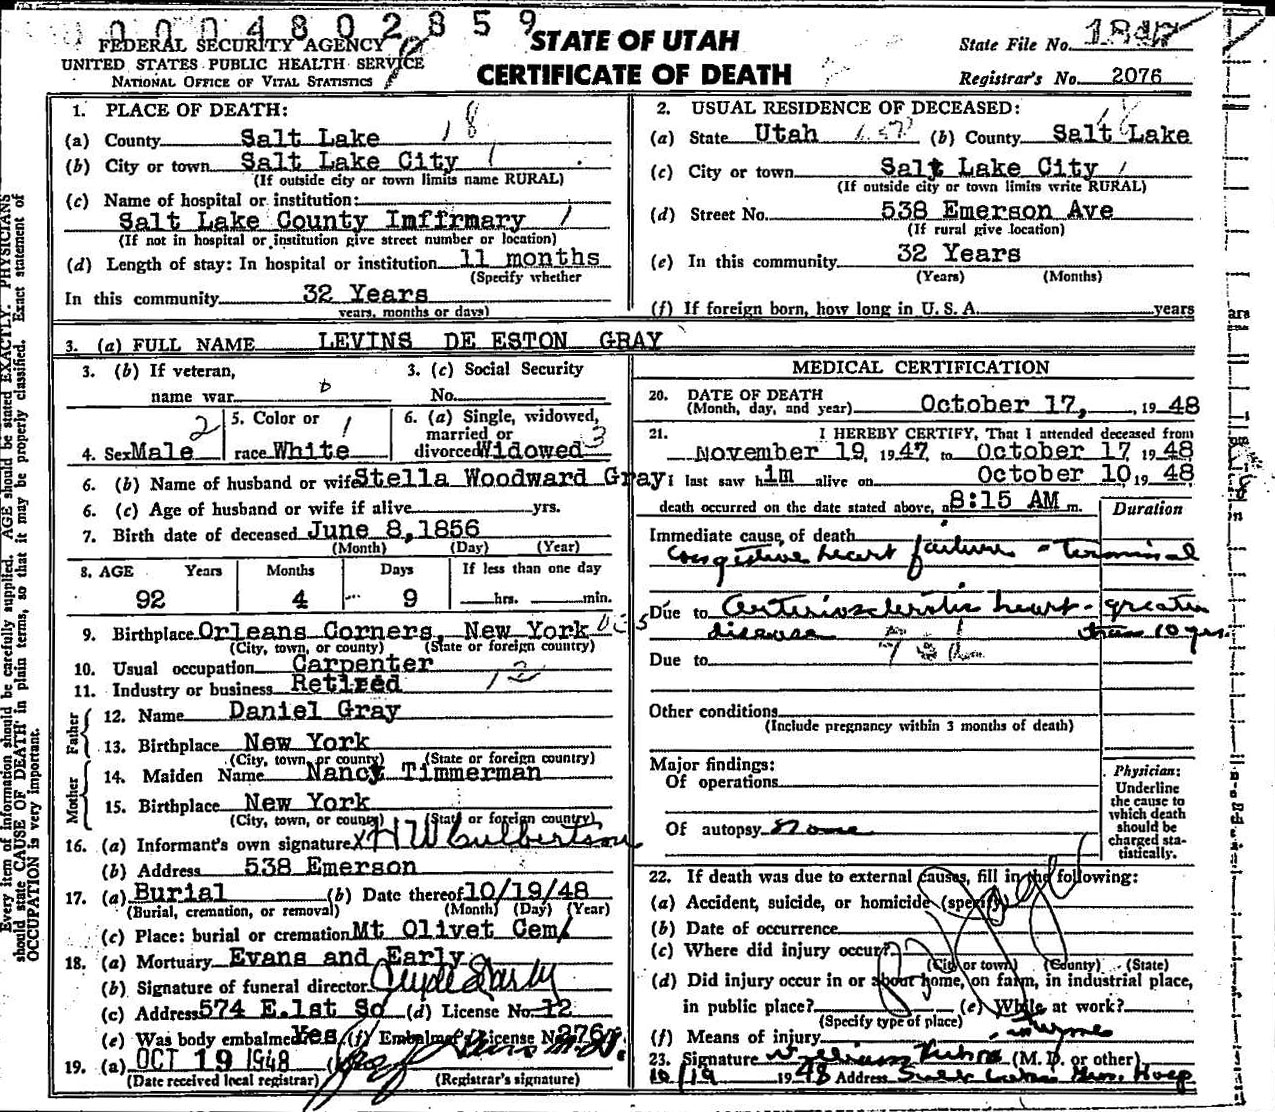 0004802859
FEDERAL SECURITY AGENCY
UNITED STATES PUBLIC HEALTH SERVICE
NATIONAL OFFICE OF VITAL STATISTICS
STATE OF UTAH
CERTIFICATE OF DEATH
State File No.
Registrar's No. 2076
1. PLACE OF DEATH:
(a) County Salt Lake 18
(b) City or town Salt Lake City 1
(If outside city or town limits name RURAL)
(c) Name of hospital or institution:
Salt Lake County Imfirmary 1
(If not in hospital or institution give street number or location)
(d) Length of stay: In hospital or institution 11 months
(Specify whether
In this community 32 Years
years, months or days)
2. USUAL RESIDENCE OF DECEASED:
(a) State Utah (b) County Salt Lake
(c) City or town Salt Lake City 1
(If outside city or town limits write RURAL)
(d) Street No. 538 Emerson Ave
(If rural give location)
(e) In this community 32 Years
(Years) (Months)
(f) If foreign born, how long in U. S. A. years
3. (a) FULL NAME LEVINS DE ESTON GRAY
3. (b) If veteran,
name war
3. (c) Social Security
No.
4. Sex Male 2
5. Color or
race White 1
6. (a) Single, widowed,
married or
divorced Widowed 3
6. (b) Name of husband or wife Stella Woodward Gray
6. (c) Age of husband or wife if alive yrs.
7. Birth date of deceased June 8, 1856
(Month) (Day) (Year)
8. AGE Years Months Days If less than one day
92 4 9 hrs. min.
9. Birthplace Orleans Corners, New York
(City, town, or county) (State or foreign country)
10. Usual occupation Carpenter
11. Industry or business Retired
Father
12. Name Daniel Gray
13. Birthplace New York
(City, town, or county) (State or foreign country)
Mother
14. Maiden Name Nancy Timmerman
15. Birthplace New York
(City, town, or county) (State or foreign country)
16. (a) Informant's own signature x H W Culbertson
(b) Address 538 Emerson
17. (a) Burial (b) Date thereof 10/19/48
(Burial, cremation, or removal) (Month) (Day) (Year)
(c) Place: burial or cremation Mt Olivet Cem/
18. (a) Mortuary Evans and Early
(b) Signature of funeral director Clyde Early
(c) Address 574 E.1st So (d) License No. 12
(e) Was body embalmed Yes (f) Embalmer's License No. 276
19. (a) OCT 19 1948
(Date received local registrar) (Registrar's signature)
MEDICAL CERTIFICATION
20. DATE OF DEATH
(Month, day, and year) October 17, , 19 48
21. I HEREBY CERTIFY, That I attended deceased from
November 19, 19 47, to October 17 19 48
I last saw him alive on October 10, 19 48,
death occurred on the date stated above, a 8:15 AM m.
Duration
Immediate cause of death
Congestive heart failure - terminal
Due to Arteriosclerotic heart - greater
disease than 10 yrs.
Due to
Other conditions
(Include pregnancy within 3 months of death)
Major findings:
Of operations
Of autopsy None
Physician:
Underline
the cause to
which death
should be
charged sta-
tistically.
22. If death was due to external causes, fill in the following:
(a) Accident, suicide, or homicide (specify)
(b) Date of occurrence
(c) Where did injury occur?
(City or town) (County) (State)
(d) Did injury occur in or about home, on farm, in industrial place,
in public place? (e) While at work?
(Specify type of place)
(f) Means of injury
23. Signature William (M. D. or other)
10/19 19 48 Address Salt Lake Gen. Hosp
Every item of information should be carefully supplied. AGE should be stated EXACTLY. PHYSICIANS
should state CAUSE OF DEATH in plain terms, so that it may be properly classified. Exact statement of
OCCUPATION is very important.